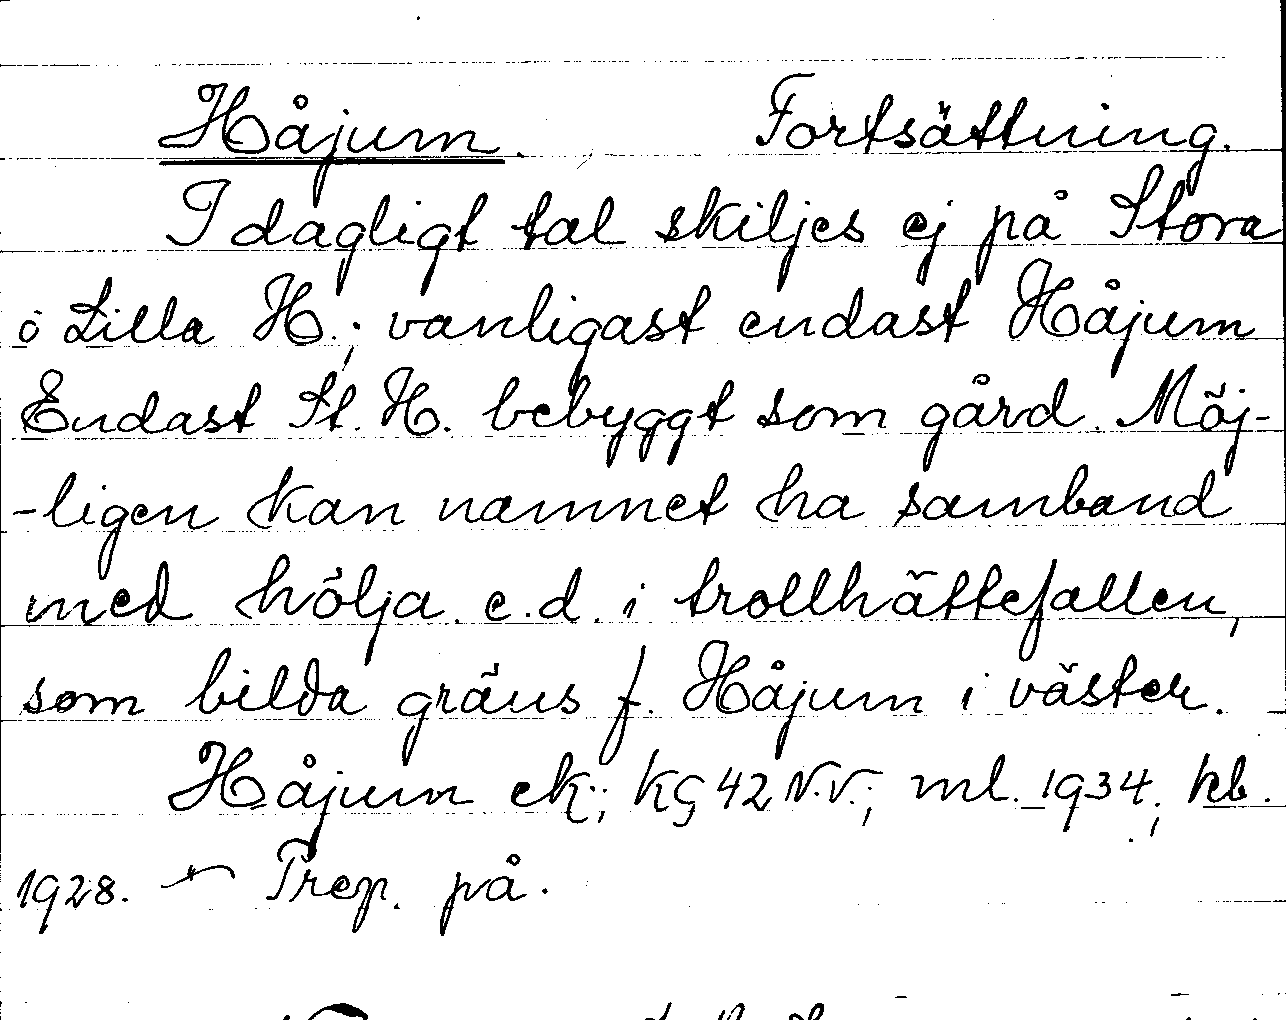 Håjum. Fortsättning.
I dagligt tal skiljes ej på Stora
o Lilla H.; vanligast endast Håjum
Endast St. H. bebyggt som gård. Möj-
-ligen kan namnet ha samband
med hölja e.d. i trollhättefallen,
som bilda gräns f. Håjum i väster.
Håjum ek.; KG 42 N.V.; ml. 1934; kb.
1928. — Prep. på.